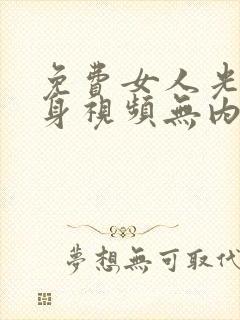 免費女人光
身視頻無內
夢想無可取代